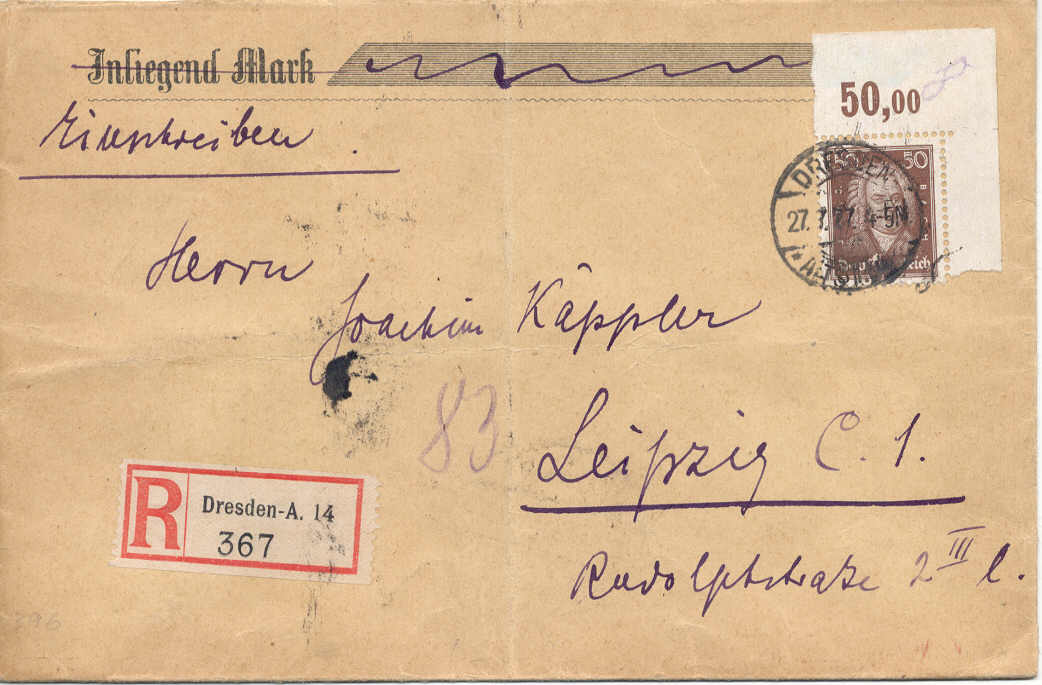 Inliegend Mark
50,00
Einschreiben
50
DRESDEN
27. 7. 27. 4-5N
* ALTST.
Herrn
Joachim Käppler
83
Leipzig C. 1.
R Dresden-A. 14
367
Rudolphstraße 2 III l.
396